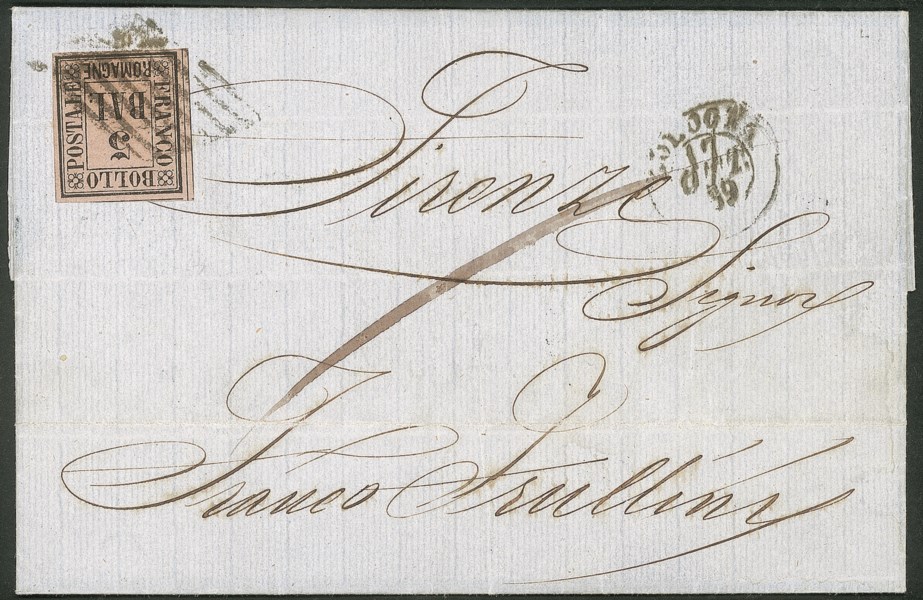 FRANCO
BOLLO
POSTALE
ROMAGNE
BAI
5
BOLOGNA
Firenze
Signor
Franco Frullini